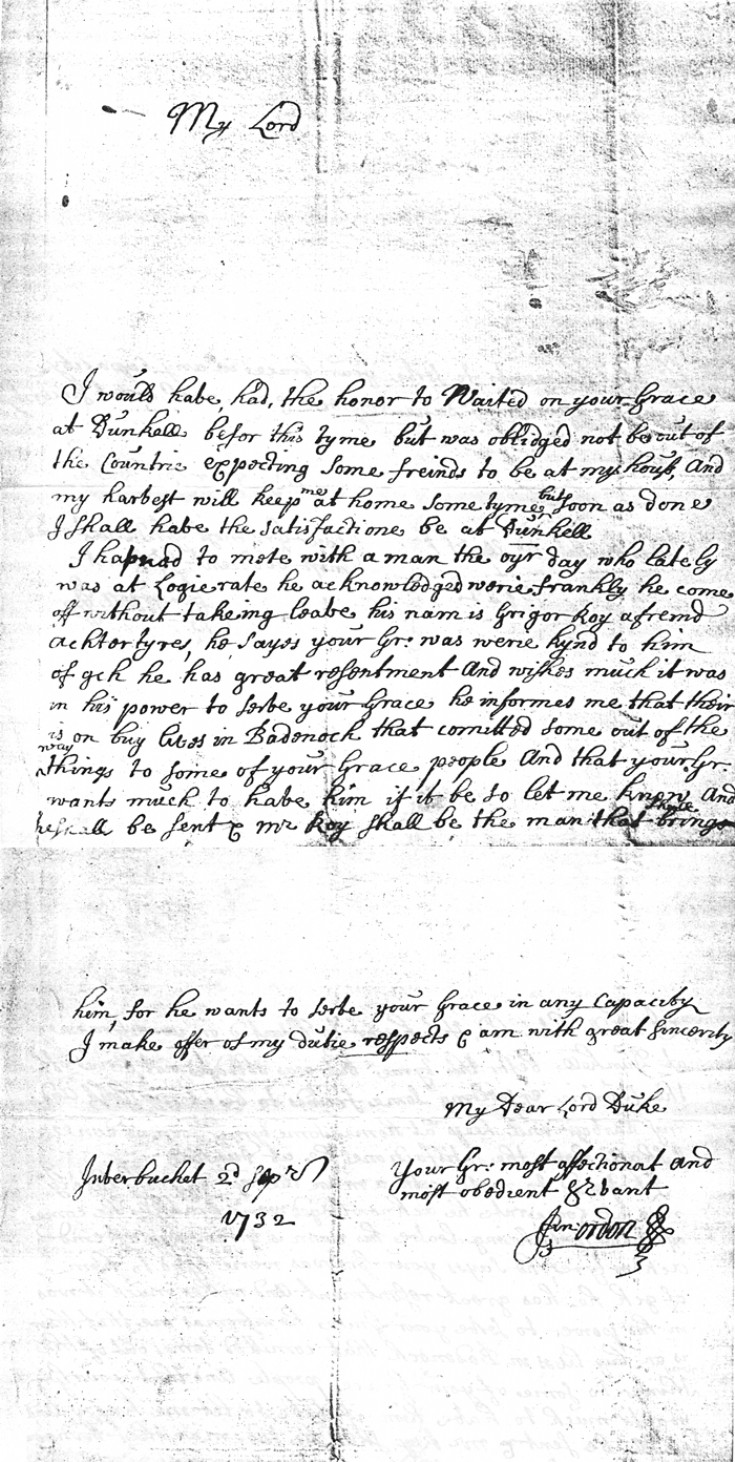 My Lord
I would have had, the honor to Waited on your Grace
at Dunkell befor this tyme but was oblidged not be out of
the Countrie expecting some freinds to be at my house, And
my harvest will keep me at home some tyme but soon as done
I shall have the satisfactione be at Dunkell
I hapned to mete with a man the oyr day who lately
was at Logierate he acknowledged werie frankly he come
off without takeing leave his nam is Grigor Roy afremd
achtertyres, he sayes your Gr: was werie kynd to him
of qch he has great resentment And wishes much it was
in his power to serve your Grace he informes me that their
is on buy lives in Badenoch that comitted some out of the
way things to some of your Grace people And that your Gr:
wants much to have him if it be so let me know And
he shall be sent & mr Roy shall be the man that shall brings
him, for he wants to serve your Grace in any Capacity
I make offer of my dutie respects & am with great sincerity
My Dear Lord Duke
Your Gr: most affectionat And
most obedient servant
Inverbucket 2d Sepr
1732
Gordon